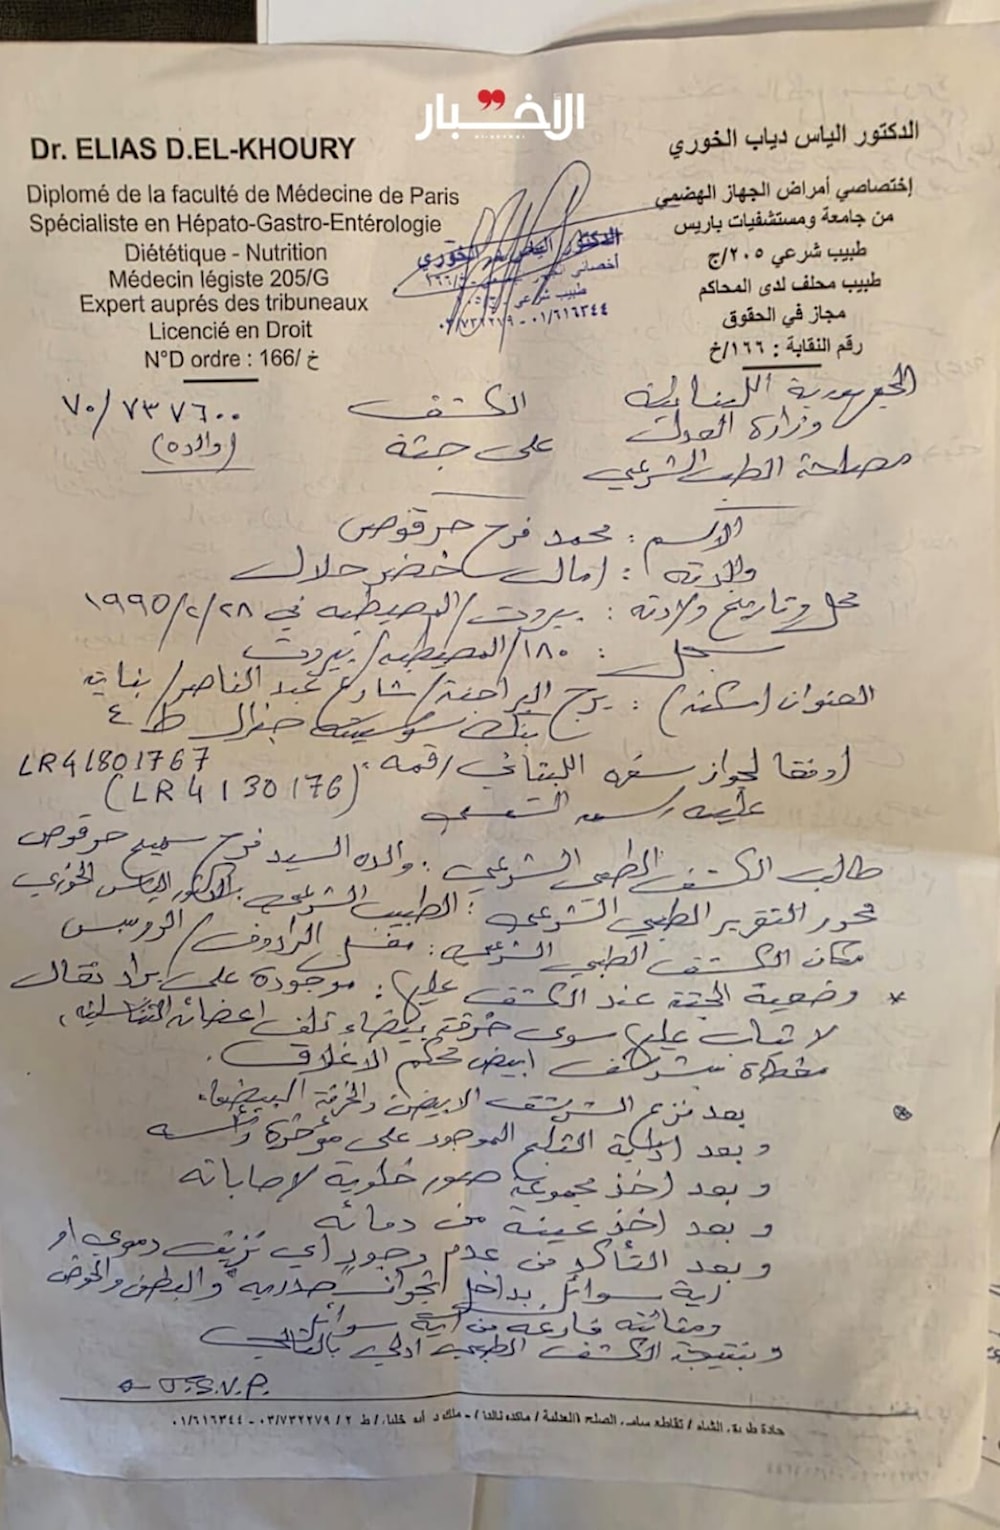 الأخبار
Dr. ELIAS D.EL-KHOURY
Diplomé de la faculté de Médecine de Paris
Spécialiste en Hépato-Gastro-Entérologie
Diététique - Nutrition
Médecin légiste 205/G
Expert auprés des tribuneaux
Licencié en Droit
N°D ordre : 166/ خ
الدكتور الياس دياب الخوري
إختصاصي أمراض الجهاز الهضمي
من جامعة ومستشفيات باريس
طبيب شرعي ٢٠٥/ج
طبيب محلف لدى المحاكم
مجاز في الحقوق
رقم النقابة : ١٦٦/خ
الدكتور الياس الخوري
طبيب شرعي
٠١/٦١٦٣٤٤ - ٠٣/٧٣٢٢٧٩
الجمهورية اللبنانية
وزارة العدل
مصلحة الطب الشرعي
الكشف
على جثة
٧٠/٧٣٧٦٠٠
(والده)
الاسم : محمد فرح حرقوص
والدته : امال خضر حلال
محل وتاريخ ولادته : بيروت/المصيطبه في ٢٨/٢/١٩٩٥
سجل : ١٨٠/المصيطبه/بيروت
العنوان (سكنه) : برج البراجنة/شارع عبد الناصر/بناية
بنك سوسيته جنرال ط ٤
(وفقا لجواز سفره اللبناني رقمه : LR41801767
(LR4130176)
عليه رسمه الشمسي
طالب الكشف الطبي الشرعي : والده السيد فرح سميح حرقوص
محرر التقرير الطبي الشرعي : الطبيب الشرعي : الدكتور الياس الخوري
مكان الكشف الطبي الشرعي : مغسل الرادوف/الرويس
* وضعية الجثة عند الكشف عليها : موجودة على براد نقال
لا ثياب عليها سوى خرقة بيضاء تلف اعضائه التناسلية،
مغطاة بشرشف ابيض محكم الاغلاق.
بعد نزع الشرشف الابيض والخرقة البيضاء
وبعد الموجود على مؤخرة رأسه
وبعد اخذ مجموعة صور خلوية لاصاباته
وبعد اخذ عينة من دمائه
وبعد التأكد من عدم وجود اي نزيف دموي او
اية سوائل بداخل اجواف صدره والبطن والحوض
ومثانته فارغه من اية سوائل
وبنتيجة الكشف الطبي ادلي بالتالي
T.S.V.P.
جادة طريق الشام / تقاطع سامي الصلح (العدلية / ماكدونالدز) - ملك د. أبو خليل / ط ٢ / ٠٣/٧٣٢٢٧٩ - ٠١/٦١٦٣٤٤